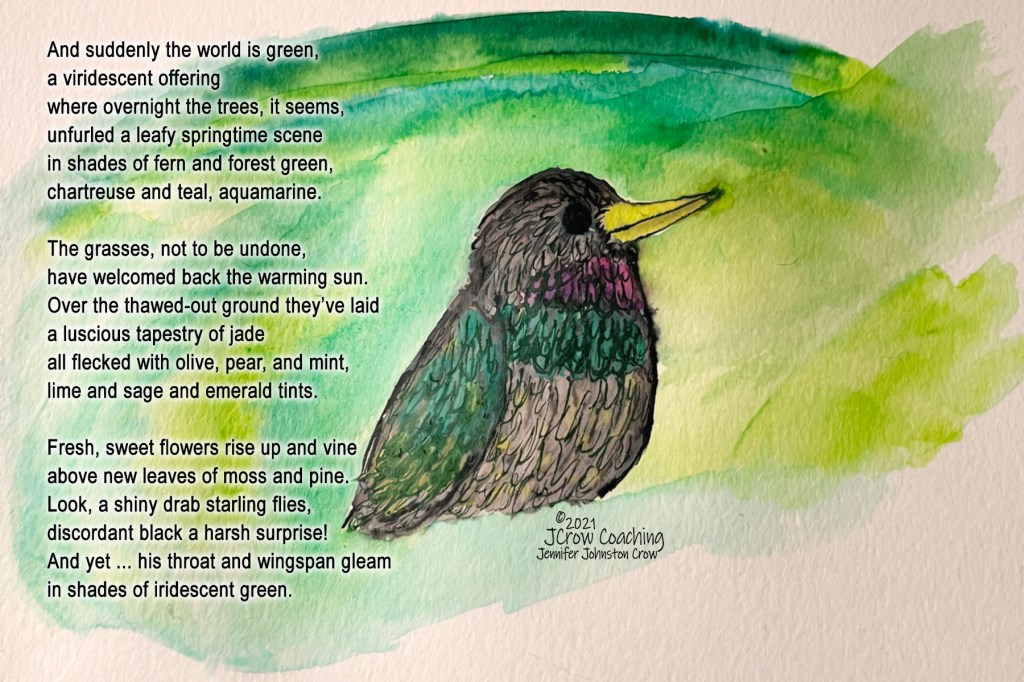 And suddenly the world is green,
a viridescent offering
where overnight the trees, it seems,
unfurled a leafy springtime scene
in shades of fern and forest green,
chartreuse and teal, aquamarine.
The grasses, not to be undone,
have welcomed back the warming sun.
Over the thawed-out ground they’ve laid
a luscious tapestry of jade
all flecked with olive, pear, and mint,
lime and sage and emerald tints.
Fresh, sweet flowers rise up and vine
above new leaves of moss and pine.
Look, a shiny drab starling flies,
discordant black a harsh surprise!
And yet ... his throat and wingspan gleam
in shades of iridescent green.
©2021
JCrow Coaching
Jennifer Johnston Crow